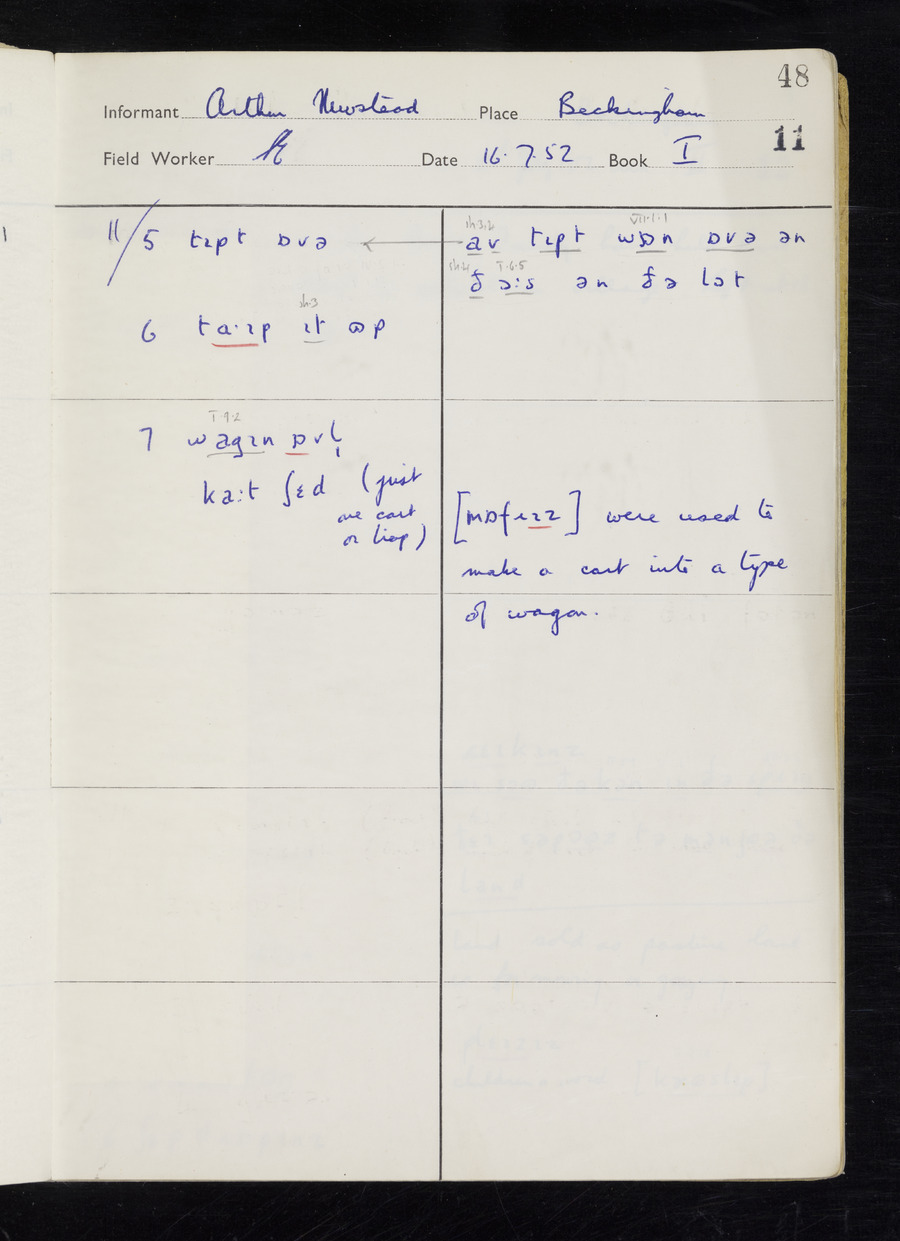 48
Informant Arthur Newstead Place Beckingham
11
Field Worker Date 16.7.52 Book I
11/5 tɪpt ɒvə
sh.3.2 VII.1.1
av tɪpt wɒn ɒvə ən
sh.4 T.6.5
ð ɔːs ən ðə lɒt
sh.3
6 taˑɪp ɪt ʊp
T.9.2
7 wagɪn ɒvl̩
kaːt ʃɛd (just
one cart
or trap)
[mɒfɪɪz] were used to
make a cart into a type
of wagon.